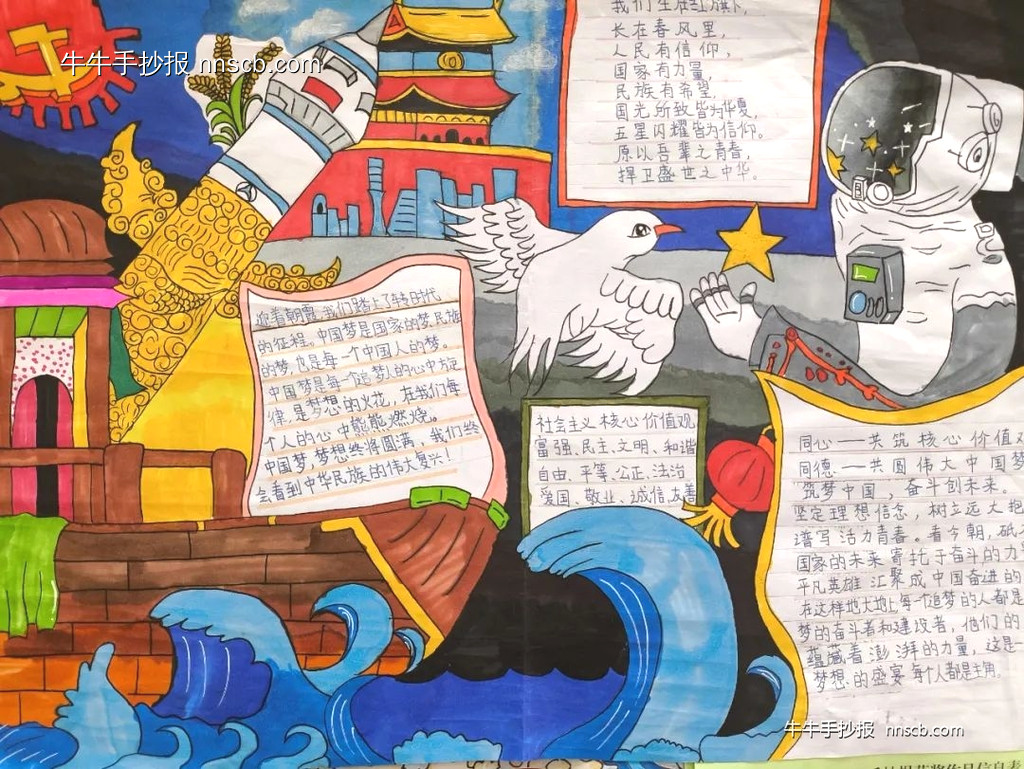 牛牛手抄报 nnscb.com
我们生在红旗下,
长在春风里,
人民有信仰,
国家有力量,
民族有希望,
国光所致皆为华夏,
五星闪耀皆为信仰。
原以吾辈之青春,
捍卫盛世之中华。
迎着朝霞,我们踏上了新时代
的征程。中国梦是国家的梦,民族
的梦,也是每一个中国人的梦。
中国梦是每一个追梦人的心中旋
律,是梦想的火花,在我们每
个人的心中熊熊燃烧。
中国梦,梦想终将圆满,我们终
会看到中华民族的伟大复兴!
社会主义核心价值观
富强、民主、文明、和谐
自由、平等、公正、法治
爱国、敬业、诚信、友善
同心——共筑核心价值观
同德——共圆伟大中国梦
筑梦中国,奋斗创未来。
坚定理想信念,树立远大抱
谱写活力青春。看今朝,砥
国家的未来寄托于奋斗的力
平凡英雄汇聚成中国奋进的
在这样地大地上每一个追梦的人都是
梦的奋斗者和建设者,他们的
蕴藏着澎湃的力量,这是一
梦想的盛宴每个人都是主角。
牛牛手抄报 nnscb.com